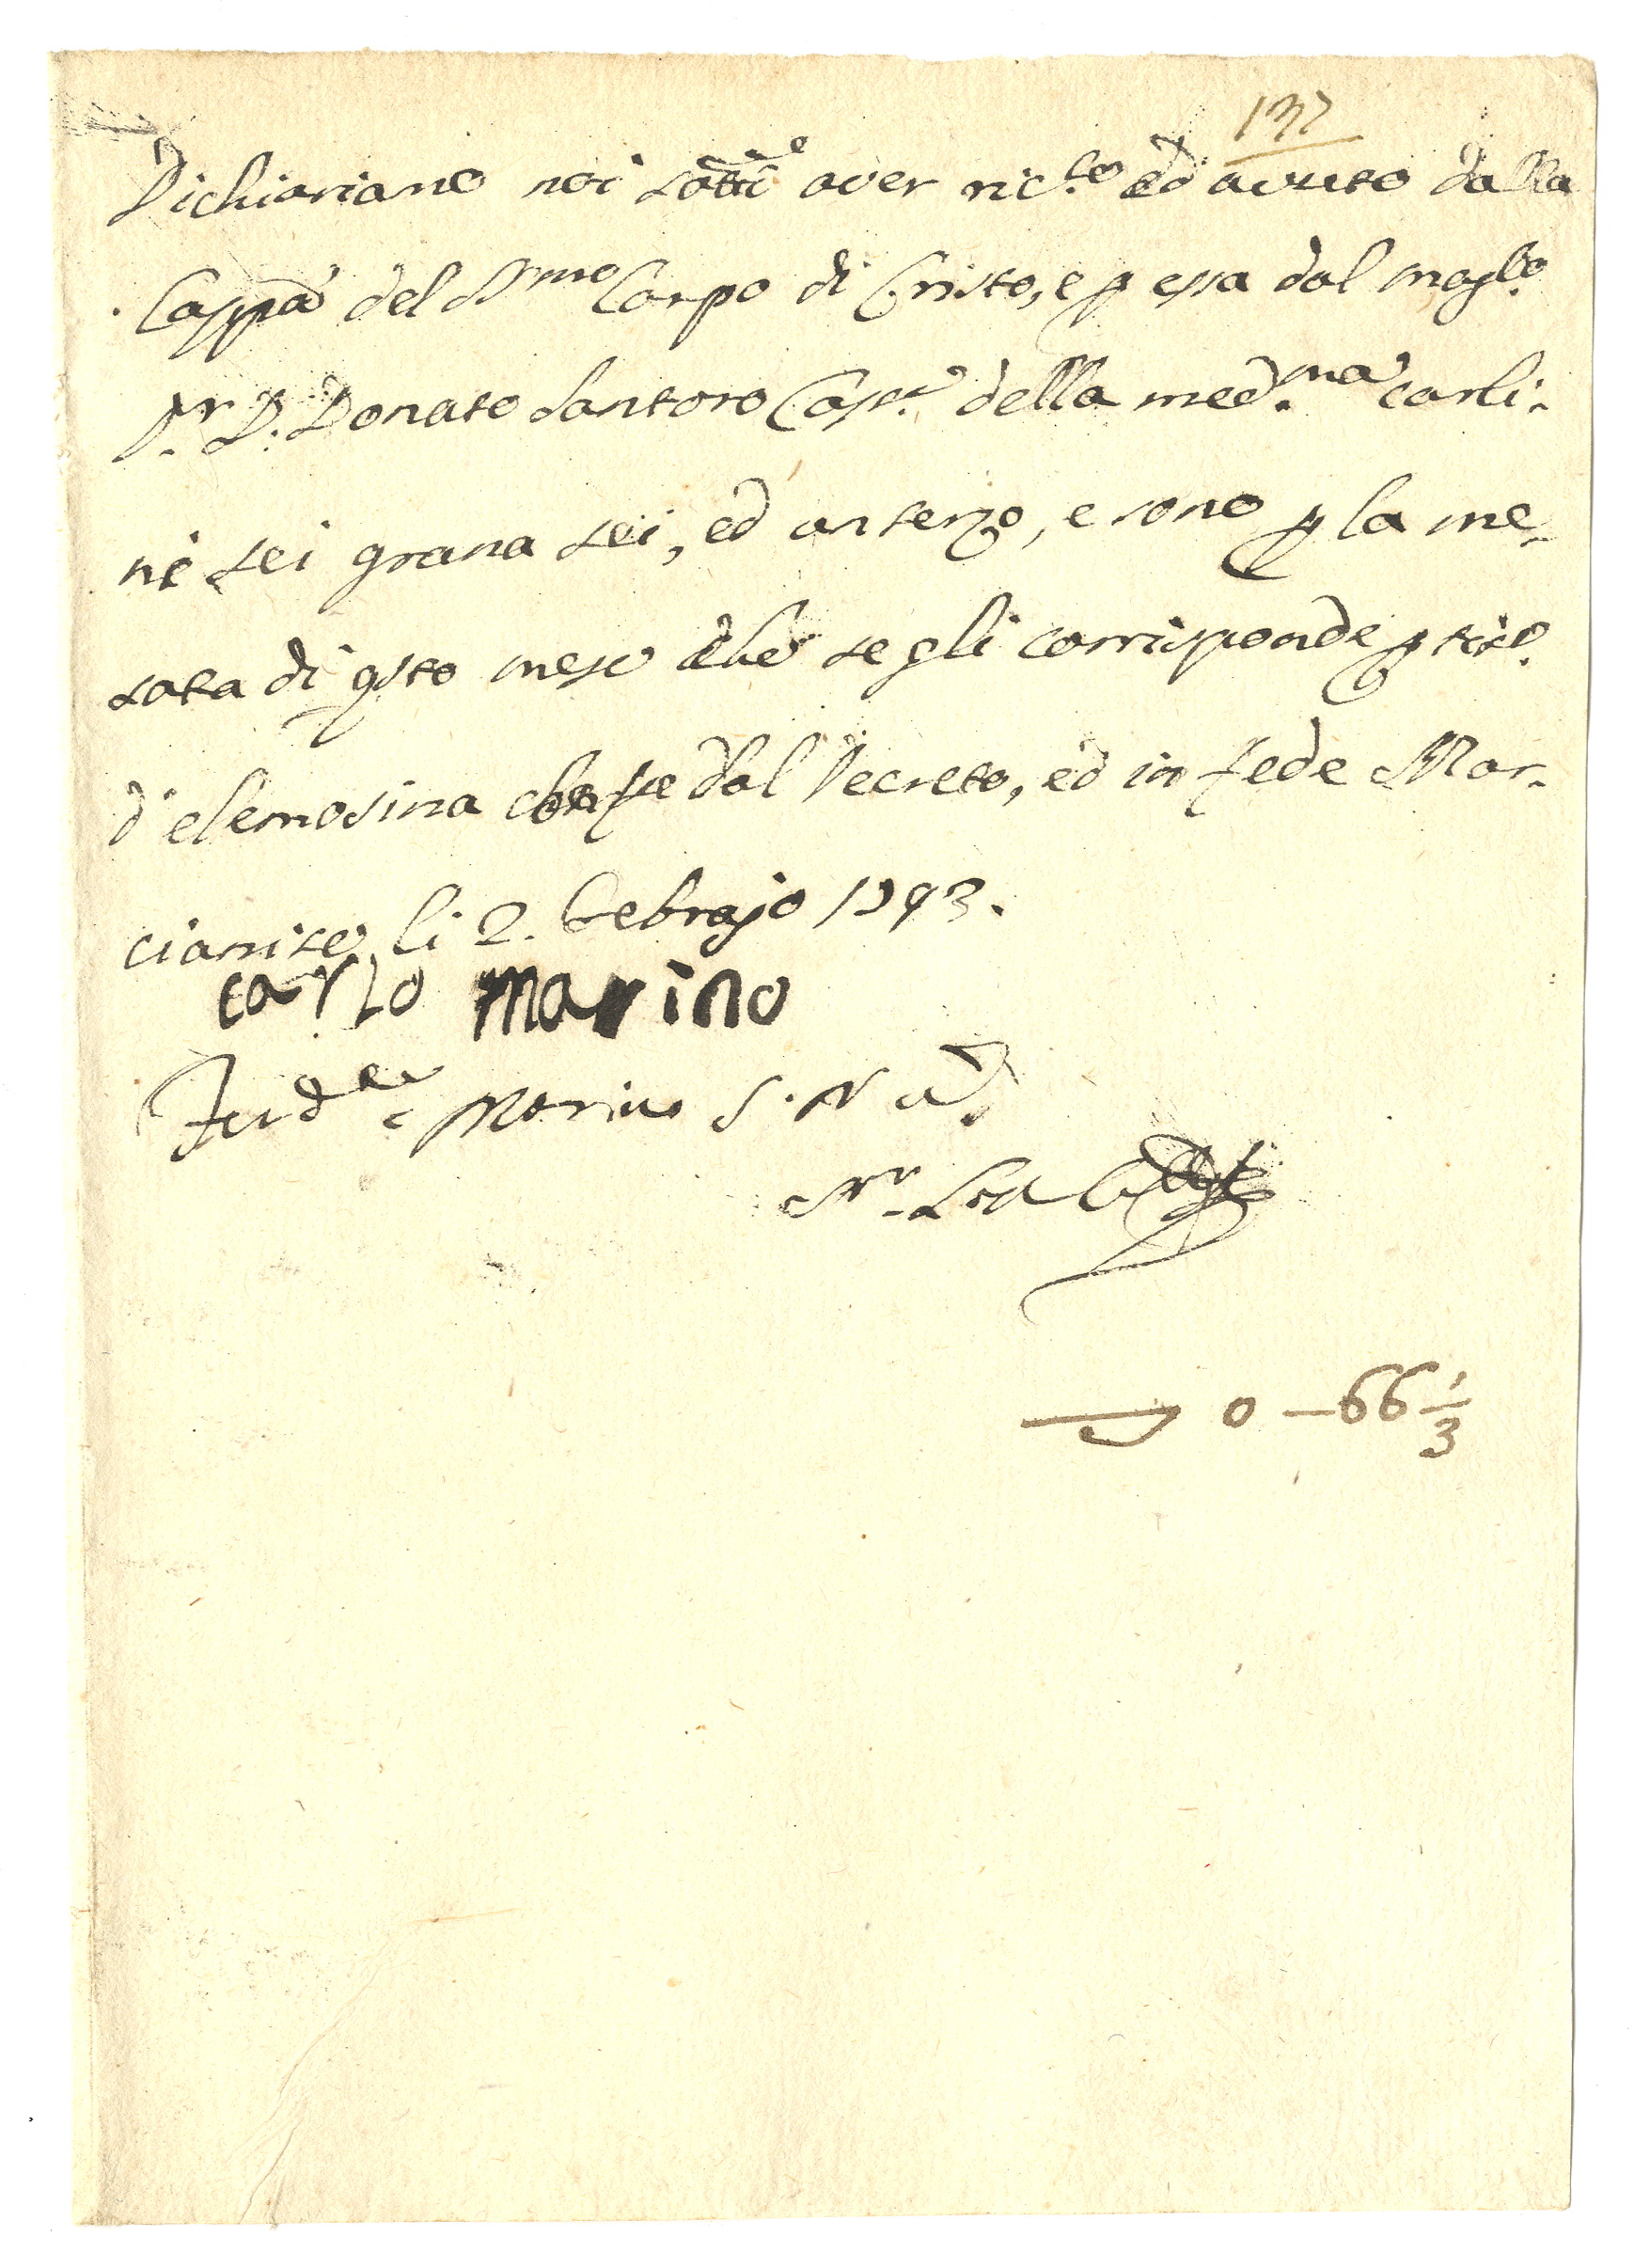 137
Dichiariamo noi sotti aver ric.to ed avuto dalla
Cappa del SS.mo Corpo di Cristo, e p essa dal mag.co
Sr. D. Donato Santoro Cass.e della med.ma carli-
ni sei grana sei, ed un terzo, e sono p la me-
sata di qsto mese che se gli corrisponde p tit.o
d'elemosina dal Decreto, ed in fede Mar-
cianise li 2. Febrajo 1793.
carlo marino
Ferd.e Marino
0 — 66 1/3